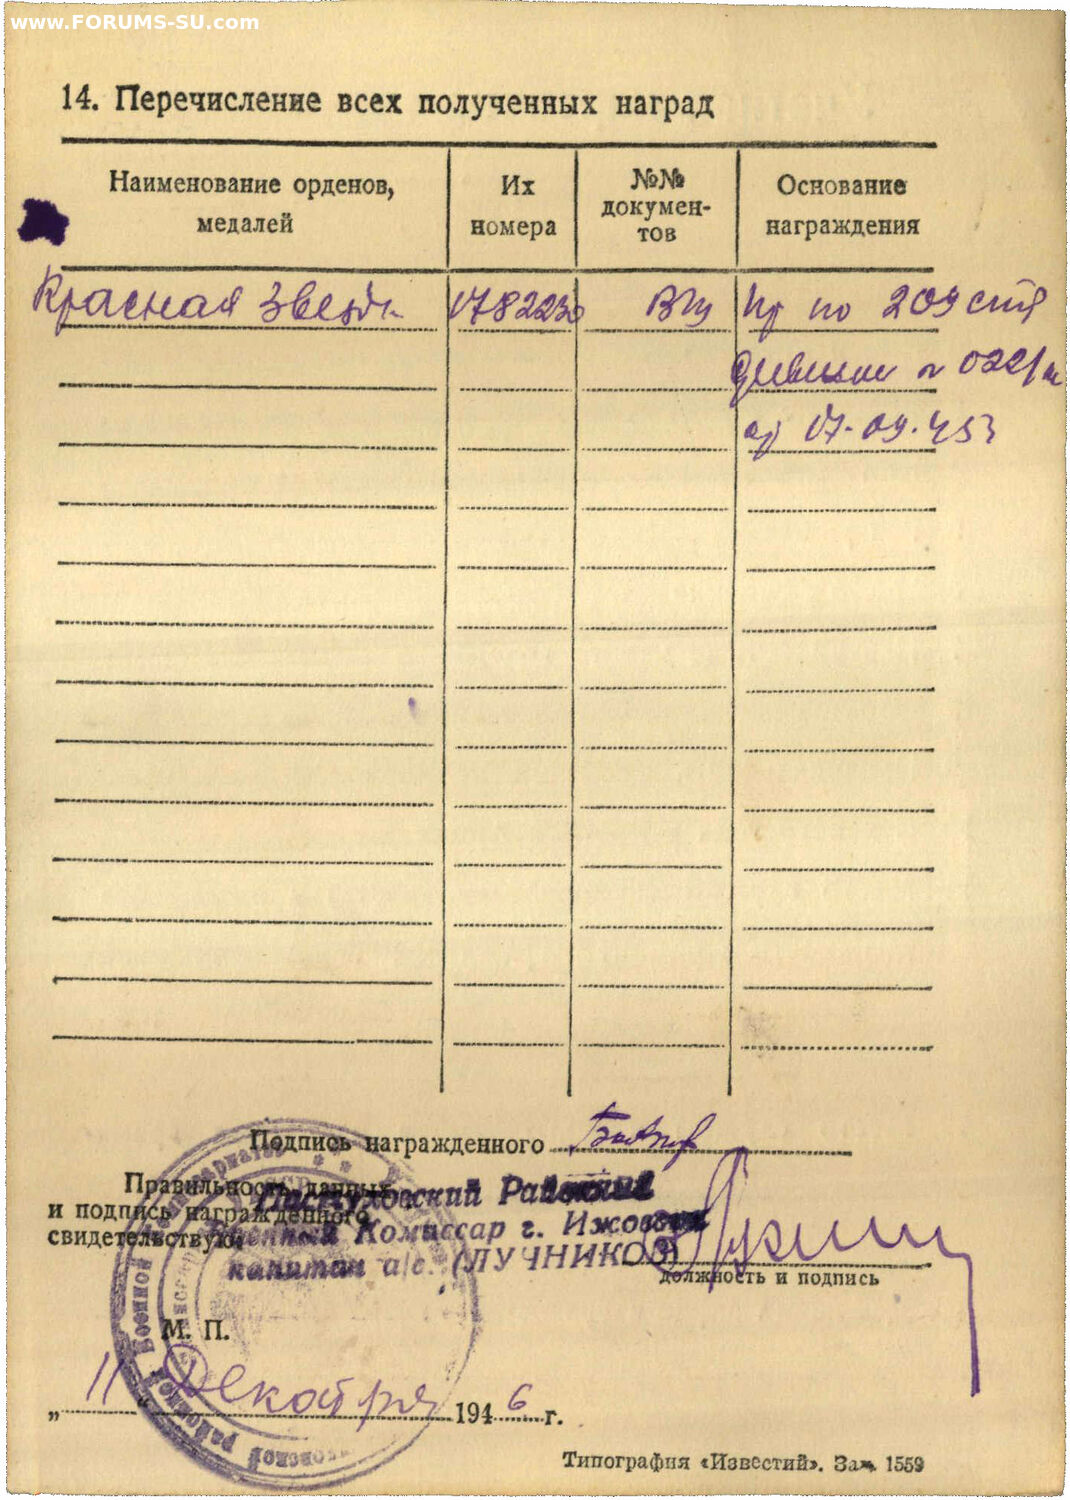 www.FORUMS-SU.com
14. Перечисление всех полученных наград
Наименование орденов, медалей
Их номера
№№ докумен-тов
Основание награждения
Красная Звезда 1782230 Пр по 209 стр
дивизии
от 17.09.45г
Подпись награжденного
Правильность данных
и подпись награжденного
свидетельствую:
Пастуховский Районный
Военный Комиссар г. Ижовска
капитан а/с. (ЛУЧНИКОВ)
должность и подпись
М. П.
„ 11 “ Декабря 1946 г.
Типография «Известий». Зак. 1559